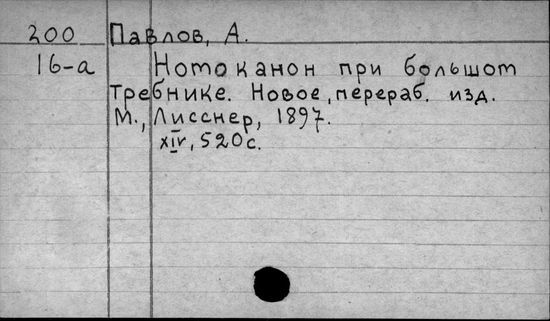 200 Павлов, А.
16-а Нотоканон при большот
требнике. Новое, перераб. изд.
М., Лисснер, 1897.
XIV, 520 с.